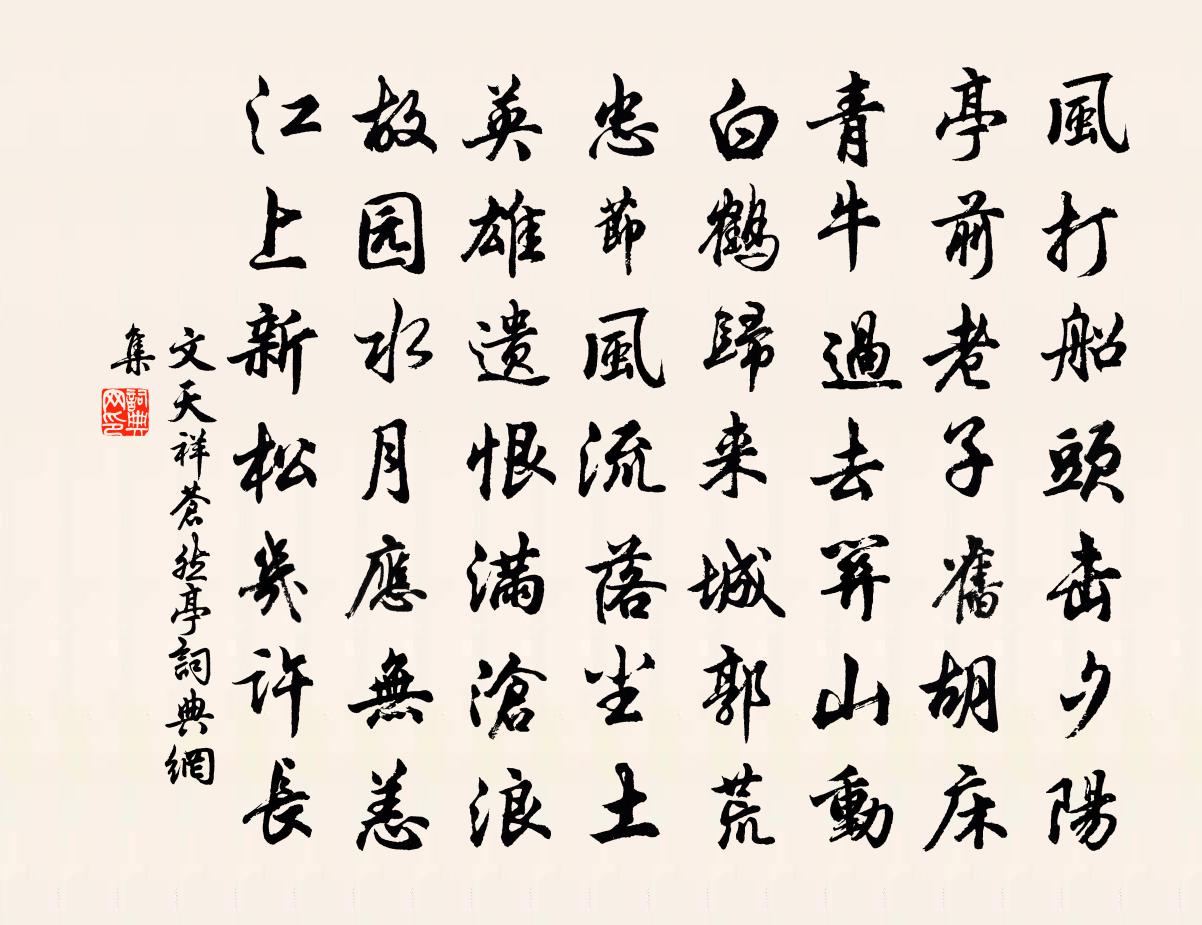 風打船頭击夕陽
亭前老子舊胡床
青牛過去關山動
白鶴歸来城郭荒
忠節風流落尘土
英雄遗恨满滄浪
故园水月應無恙
江上新松幾許長
文天祥蒼然亭詞典網
集
詞典网印